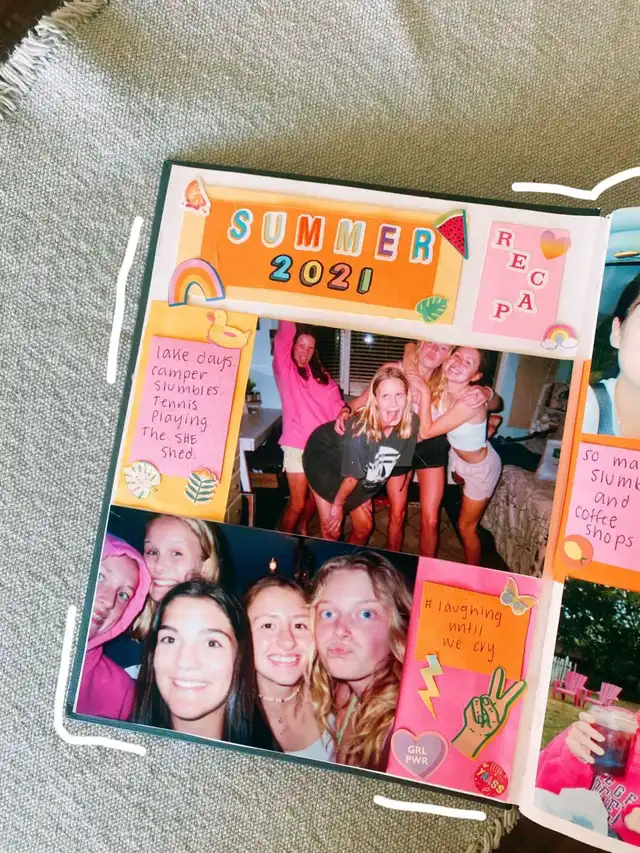 SUMMER
2021
RECAP
lake days.
camper
slumbies.
Tennis
playing.
The SHE
shed.
#laughing
until
we cry
GRL
PWR
YASSS
so ma
slumb
and
coffee
shops